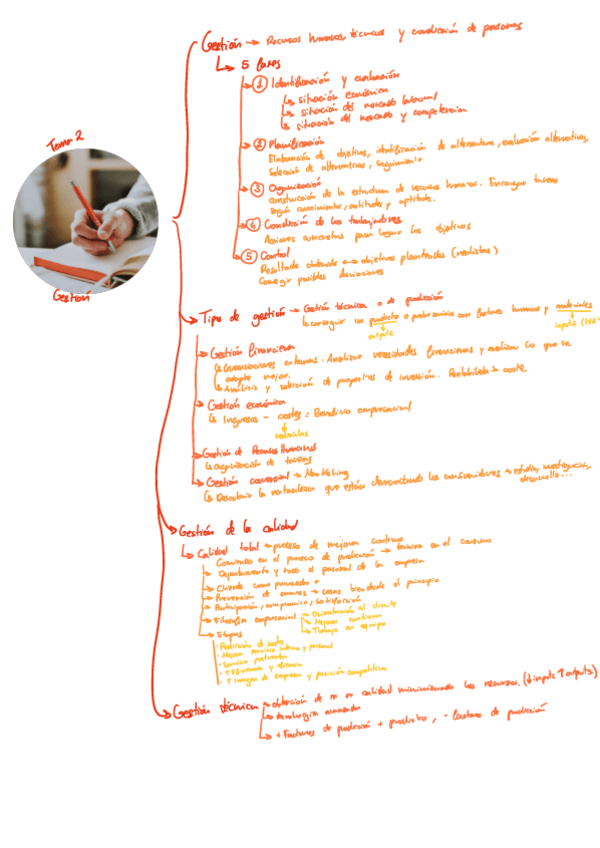 Tema 2
Gestión
Gestión → Recursos humanos, técnicos y coordinación de personas
5 fases
① Identificación y evaluación
situación económica
situación del mercado laboral
situación del mercado y competencia
② Planificación
Elaboración de objetivos, identificación de alternativas, evaluación alternativas,
Selección de alternativas, seguimiento
③ Organización
construcción de la estructura de recursos humanos. Encargar tareas
según conocimientos, aptitudes y aptitude.
④ Coordinación de los trabajadores
Acciones concretas para lograr los objetivos
⑤ Control
Resultado obtenido ↔ objetivos planteados (realistas)
Corregir posibles desviaciones
Tipo de gestión → Gestión técnica o de producción
conseguir un producto con factores humanos y materiales
outputs
inputs
Gestión financiera
Inversiones externas. Analizar necesidades financieras y analizar lo que se
adapte mejor.
Análisis y selección de proyectos de inversión. Rentabilidad > coste
Gestión económica
Ingresos - costes = Beneficio empresarial
Gestión de Recursos Humanos
organización de tareas
Gestión comercial → Marketing
Descubrir la naturaleza que están demandando los consumidores → estudio, investigación,
desarrollo...
Gestión de la calidad
Calidad total → proceso de mejora continua
Comienza en el proceso de producción → termina en el consumo
Departamento y todo el personal de la empresa
Cliente como proveedor
Prevención de errores → cosas bien desde el principio
Participación, compromiso, satisfacción
Filosofía empresarial → Orientación al cliente
Mejora continua
Trabajo en equipo
Etapas
· Reducción de costes
· Mejora servicio interno y personal
· Servicio postventa
· ↑ Eficiencia y eficacia
· ↑ imagen de empresa y posición competitiva
Gestión técnica → obtención de calidad minimizando los recursos. (↓ inputs ↑ outputs)
tecnología avanzada
+ Factores de producción + producto, - costes de producción